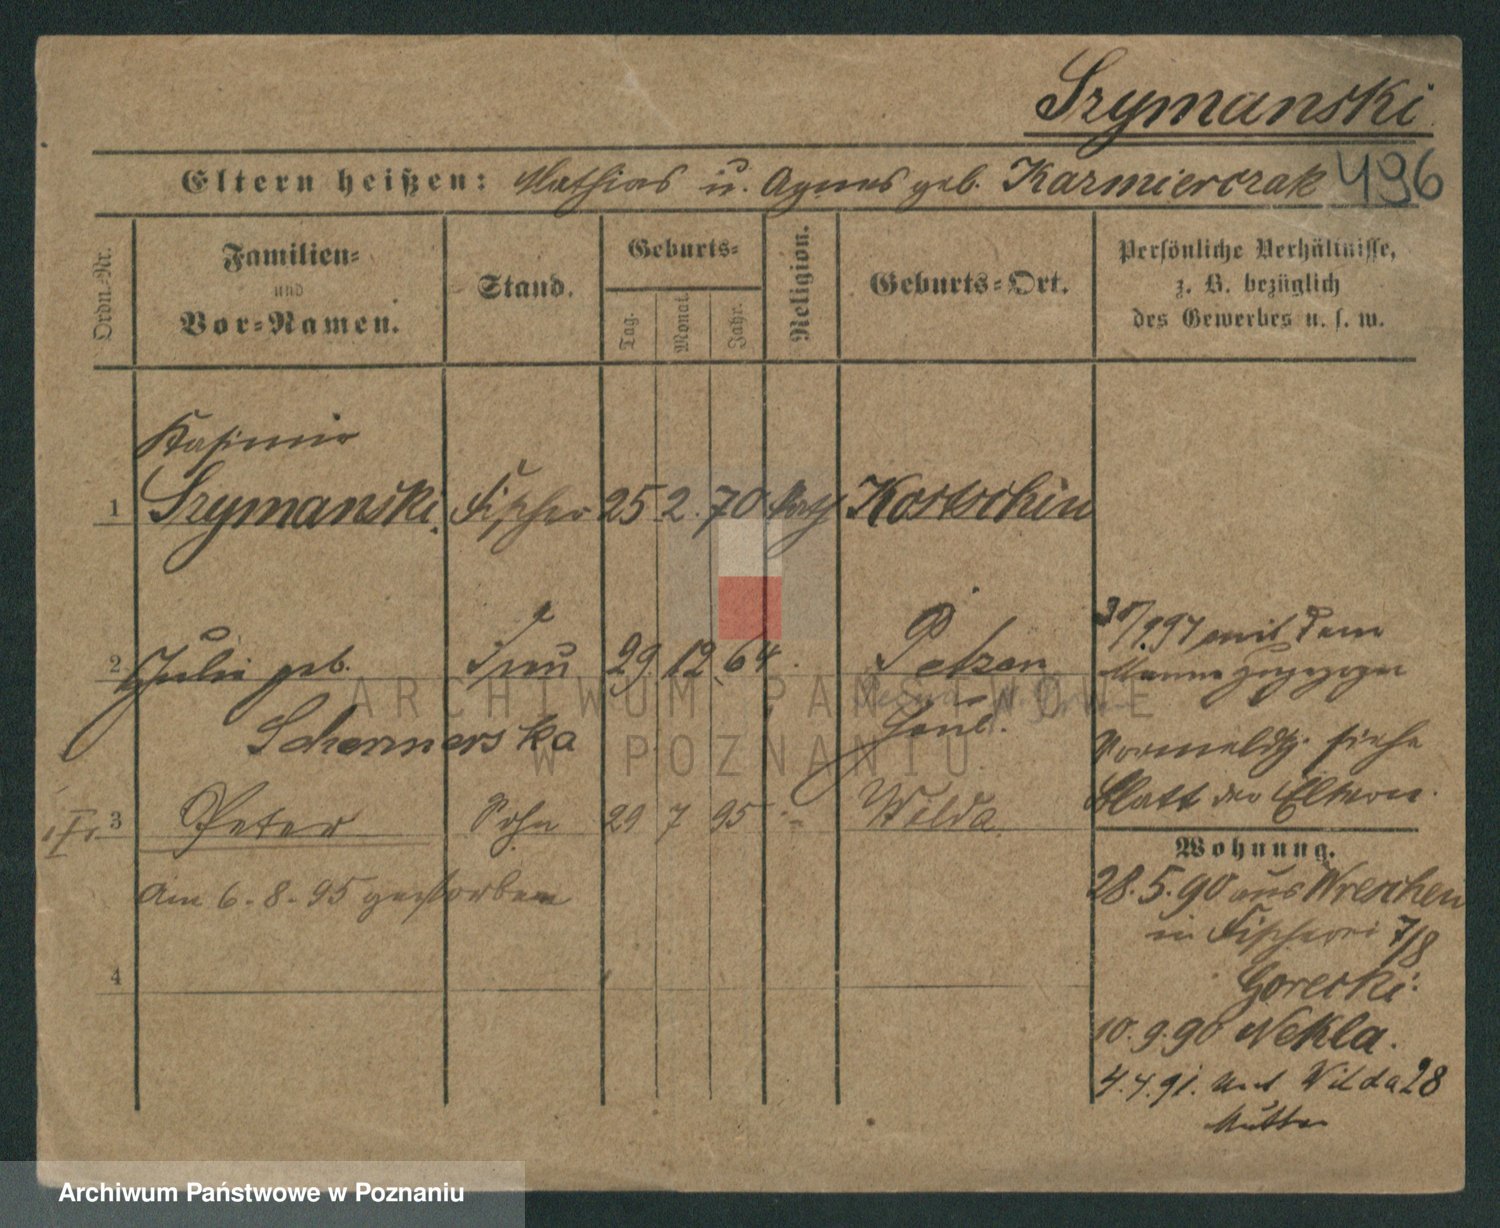 Szymanski
Eltern heißen: Mathias u. Agnes geb. Kazmierczak 496
Ordn.-Nr.
Familien-
und
Vor-Namen.
Stand.
Geburts-
Tag.
Monat.
Jahr.
Religion.
Geburts-Ort.
Persönliche Verhältnisse,
z. B. bezüglich
des Gewerbes u. s. w.
Kasimir
1 Szymanski. Fischer 25. 2. 70 Kath Kostschin
2 Julie geb. Frau 29. 12. 64. Petzen
Schermerska Haul.
3 Peter Sohn 29 7 95 Wilda.
Am 6.8.95 gestorben
4
mit dem
Manne zugezogen
Vormeldg. siehe
Blatt der Eltern.
Wohnung.
28.5.90 aus Wreschen
in Fischerei 7/8
Gorecki.
10.9.90 Nekla.
4.4.91. Wilda 28
Mutter
ARCHIWUM PAŃSTWOWE
W POZNANIU
Archiwum Państwowe w Poznaniu